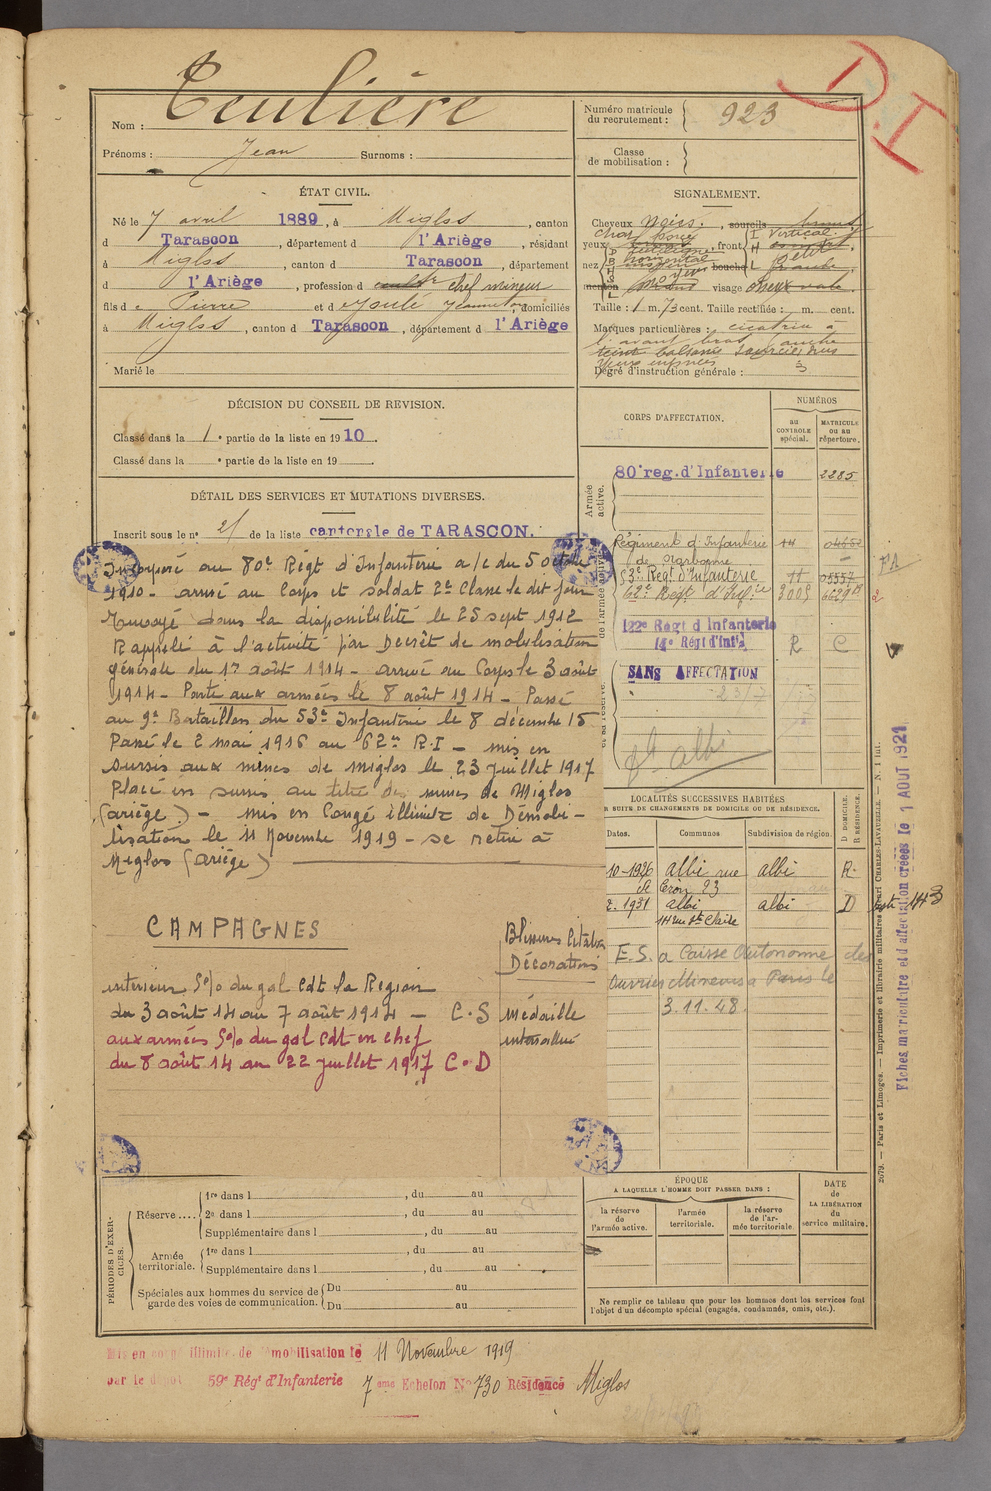 D.I
Nom : Teulière
Prénoms : Jean Surnoms :
Numéro matricule du recrutement : 923
Classe de mobilisation :
ÉTAT CIVIL.
Né le 7 avril 1889, à Miglos, canton
d Tarascon, département d l'Ariège, résidant
à Miglos, canton d Tarascon, département
d l'Ariège, profession d chef mineur
fils de Pierre et d Joulé Jeannette, domiciliés
à Miglos, canton d Tarascon, département d l'Ariège
Marié le
SIGNALEMENT.
Cheveux noirs. sourcils bruns
yeux front Vertical
nez horizontal bouche
menton moyen visage ovale
Taille : 1 m. 73 cent. Taille rectifiée : m. cent.
Marques particulières : cicatrice à
l'avant bras gauche
Degré d'instruction générale : 3
DÉCISION DU CONSEIL DE REVISION.
Classé dans la 1e partie de la liste en 1910.
Classé dans la e partie de la liste en 19
DÉTAIL DES SERVICES ET MUTATIONS DIVERSES.
Inscrit sous le n° 21 de la liste cantonale de TARASCON.
Incorporé au 80e Régt d'Infanterie a/c du 5 octobre
1910 - arrivé au Corps et soldat 2e Classe le dit jour
Renvoyé dans la disponibilité le 25 sept 1912
Rappelé à l'activité par Decrêt de mobilisation
générale du 1er août 1914 - arrivé au Corps le 3 août
1914 - Parti aux armées le 8 août 1914 - Passé
au 9e Bataillon du 53e Infanterie le 8 décembre 15
Passé le 2 mai 1916 au 62e R.I - mis en
sursis aux mines de miglos le 23 juillet 1917
Placé en sursis au titre des mines de Miglos
(ariège) - mis en Congé illimité de Démobi-
lisation le 11 Novembre 1919 - se retire à
Miglos (ariège)
CAMPAGNES
intérieur S% du gal Cdt la Région
du 3 août 14 au 7 août 1914 - C.S
aux armées S% du gal Cdt en chef
du 8 août 14 au 22 juillet 1917 C.D
Blessures Citations
Décorations
médaille
interalliée
CORPS D'AFFECTATION.
NUMÉROS
au CONTROLE spécial.
MATRICULE ou au répertoire.
Armée active.
80e reg. d'Infanterie 2285
Régiment d'Infanterie
de Narbonne
53e Regt d'Infanterie 11 05557
62e Regt d'Infie 3005
PA
122e Régt d'Infanterie
14e Régt d'Infie R C
SANS AFFECTATION
albi
LOCALITÉS SUCCESSIVES HABITÉES
PAR SUITE DE CHANGEMENTS DE DOMICILE OU DE RÉSIDENCE.
Dates. Communes Subdivision de région. D DOMICILE. R RÉSIDENCE.
10-1926 albi rue albi R.
23
2. 1931 albi albi D
14 rue Ste Claire
E.S. a Caisse Autonome des
Ouvriers Mineurs a Paris le
3.11.48.
Fiches matriculaire et d'affectation créées le 1 AOUT 1921
2579. — Paris et Limoges. — Imprimerie et librairie militaires Henri CHARLES-LAVAUZELLE. — N. 1 int.
PÉRIODES D'EXERCICES.
Réserve....
1re dans l , du au
2e dans l , du au
Supplémentaire dans l , du au
Armée territoriale.
1re dans l , du au
Supplémentaire dans l , du au
Spéciales aux hommes du service de garde des voies de communication.
Du au
Du au
ÉPOQUE
A LAQUELLE L'HOMME DOIT PASSER DANS :
la réserve de l'armée active.
l'armée territoriale.
la réserve de l'armée territoriale
DATE de LA LIBÉRATION du service militaire.
Ne remplir ce tableau que pour les hommes dont les services font
l'objet d'un décompte spécial (engagés, condamnés, omis, etc.).
Mis en congé illimité de démobilisation le 11 Novembre 1919
par le dépôt 59e Régt d'Infanterie 7eme Echelon N° 730 Résidence Miglos